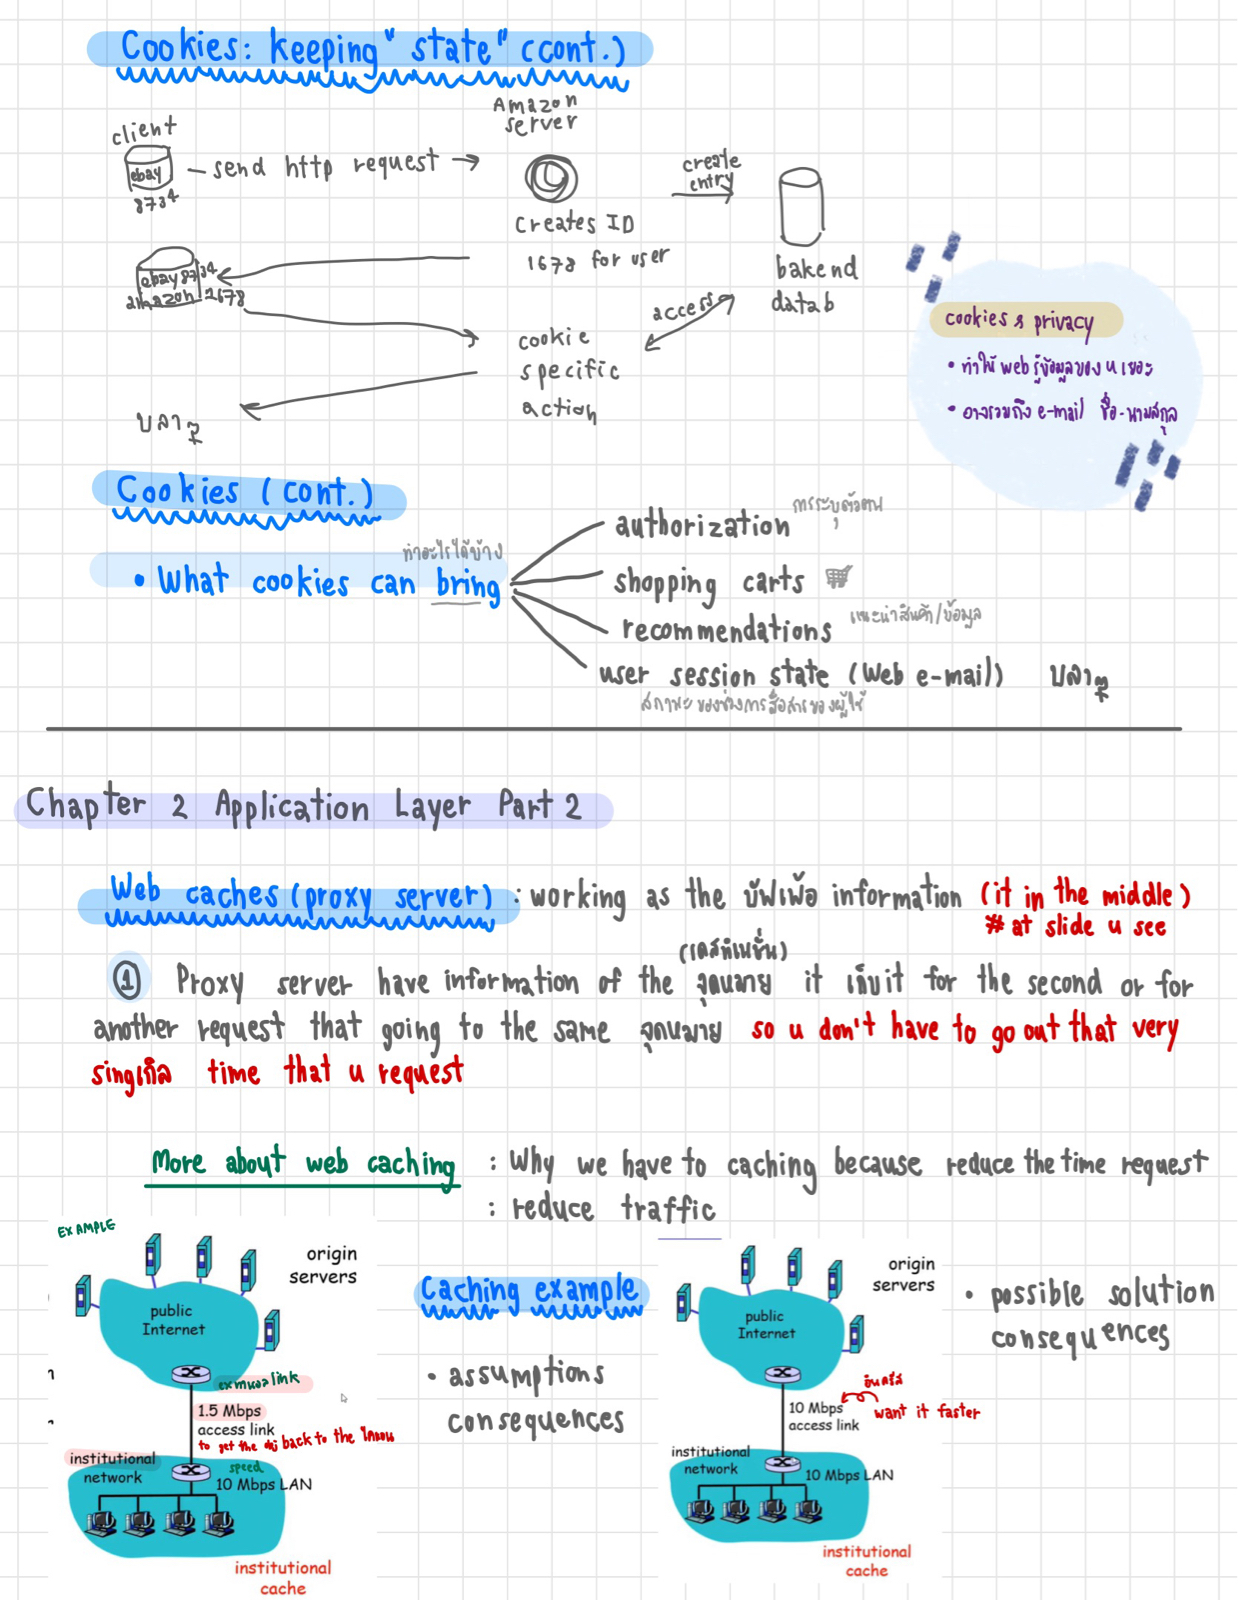 Cookies: keeping "state" (cont.)
client
ebay
8734
send http request
Amazon
server
Creates ID
1678 for user
create
entry
bakend
datab
ebay 8734
amazon 2678
access
cookie
specific
action
บลาๆ
cookies & privacy
• ทำให้ web รู้ข้อมูลของ u เยอะ
• อาจรวมถึง e-mail ชื่อ-นามสกุล
Cookies (cont.)
ทำอะไรได้บ้าง
• What cookies can bring
authorization การระบุตัวตน
shopping carts
recommendations แนะนำสินค้า/ข้อมูล
user session state (Web e-mail) บลาๆ
สถานะของช่วงการสื่อสารของผู้ใช้
Chapter 2 Application Layer Part 2
Web caches (proxy server) : working as the บัฟเฟ้อ information (it in the middle)
# at slide u see
(เดสทิเนชั่น)
① Proxy server have information of the จุดหมาย it เก็บ it for the second or for
another request that going to the same จุดหมาย so u don't have to go out that very
singเกิล time that u request
More about web caching : Why we have to caching because reduce the time request
: reduce traffic
EXAMPLE
origin
servers
public
Internet
link
1.5 Mbps
access link
to get the back to the
institutional
network
speed
10 Mbps LAN
institutional
cache
Caching example
• assumptions
consequences
origin
servers
public
Internet
อินครีส
10 Mbps
access link
want it faster
institutional
network
10 Mbps LAN
institutional
cache
• possible solution
consequences